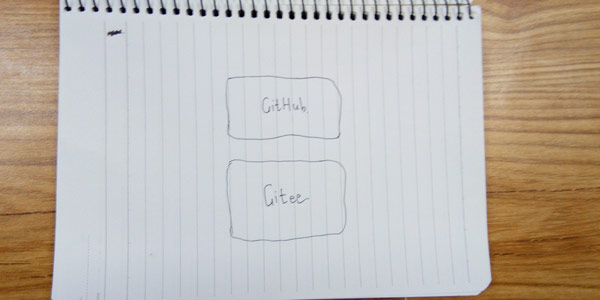 GitHub
Gitee